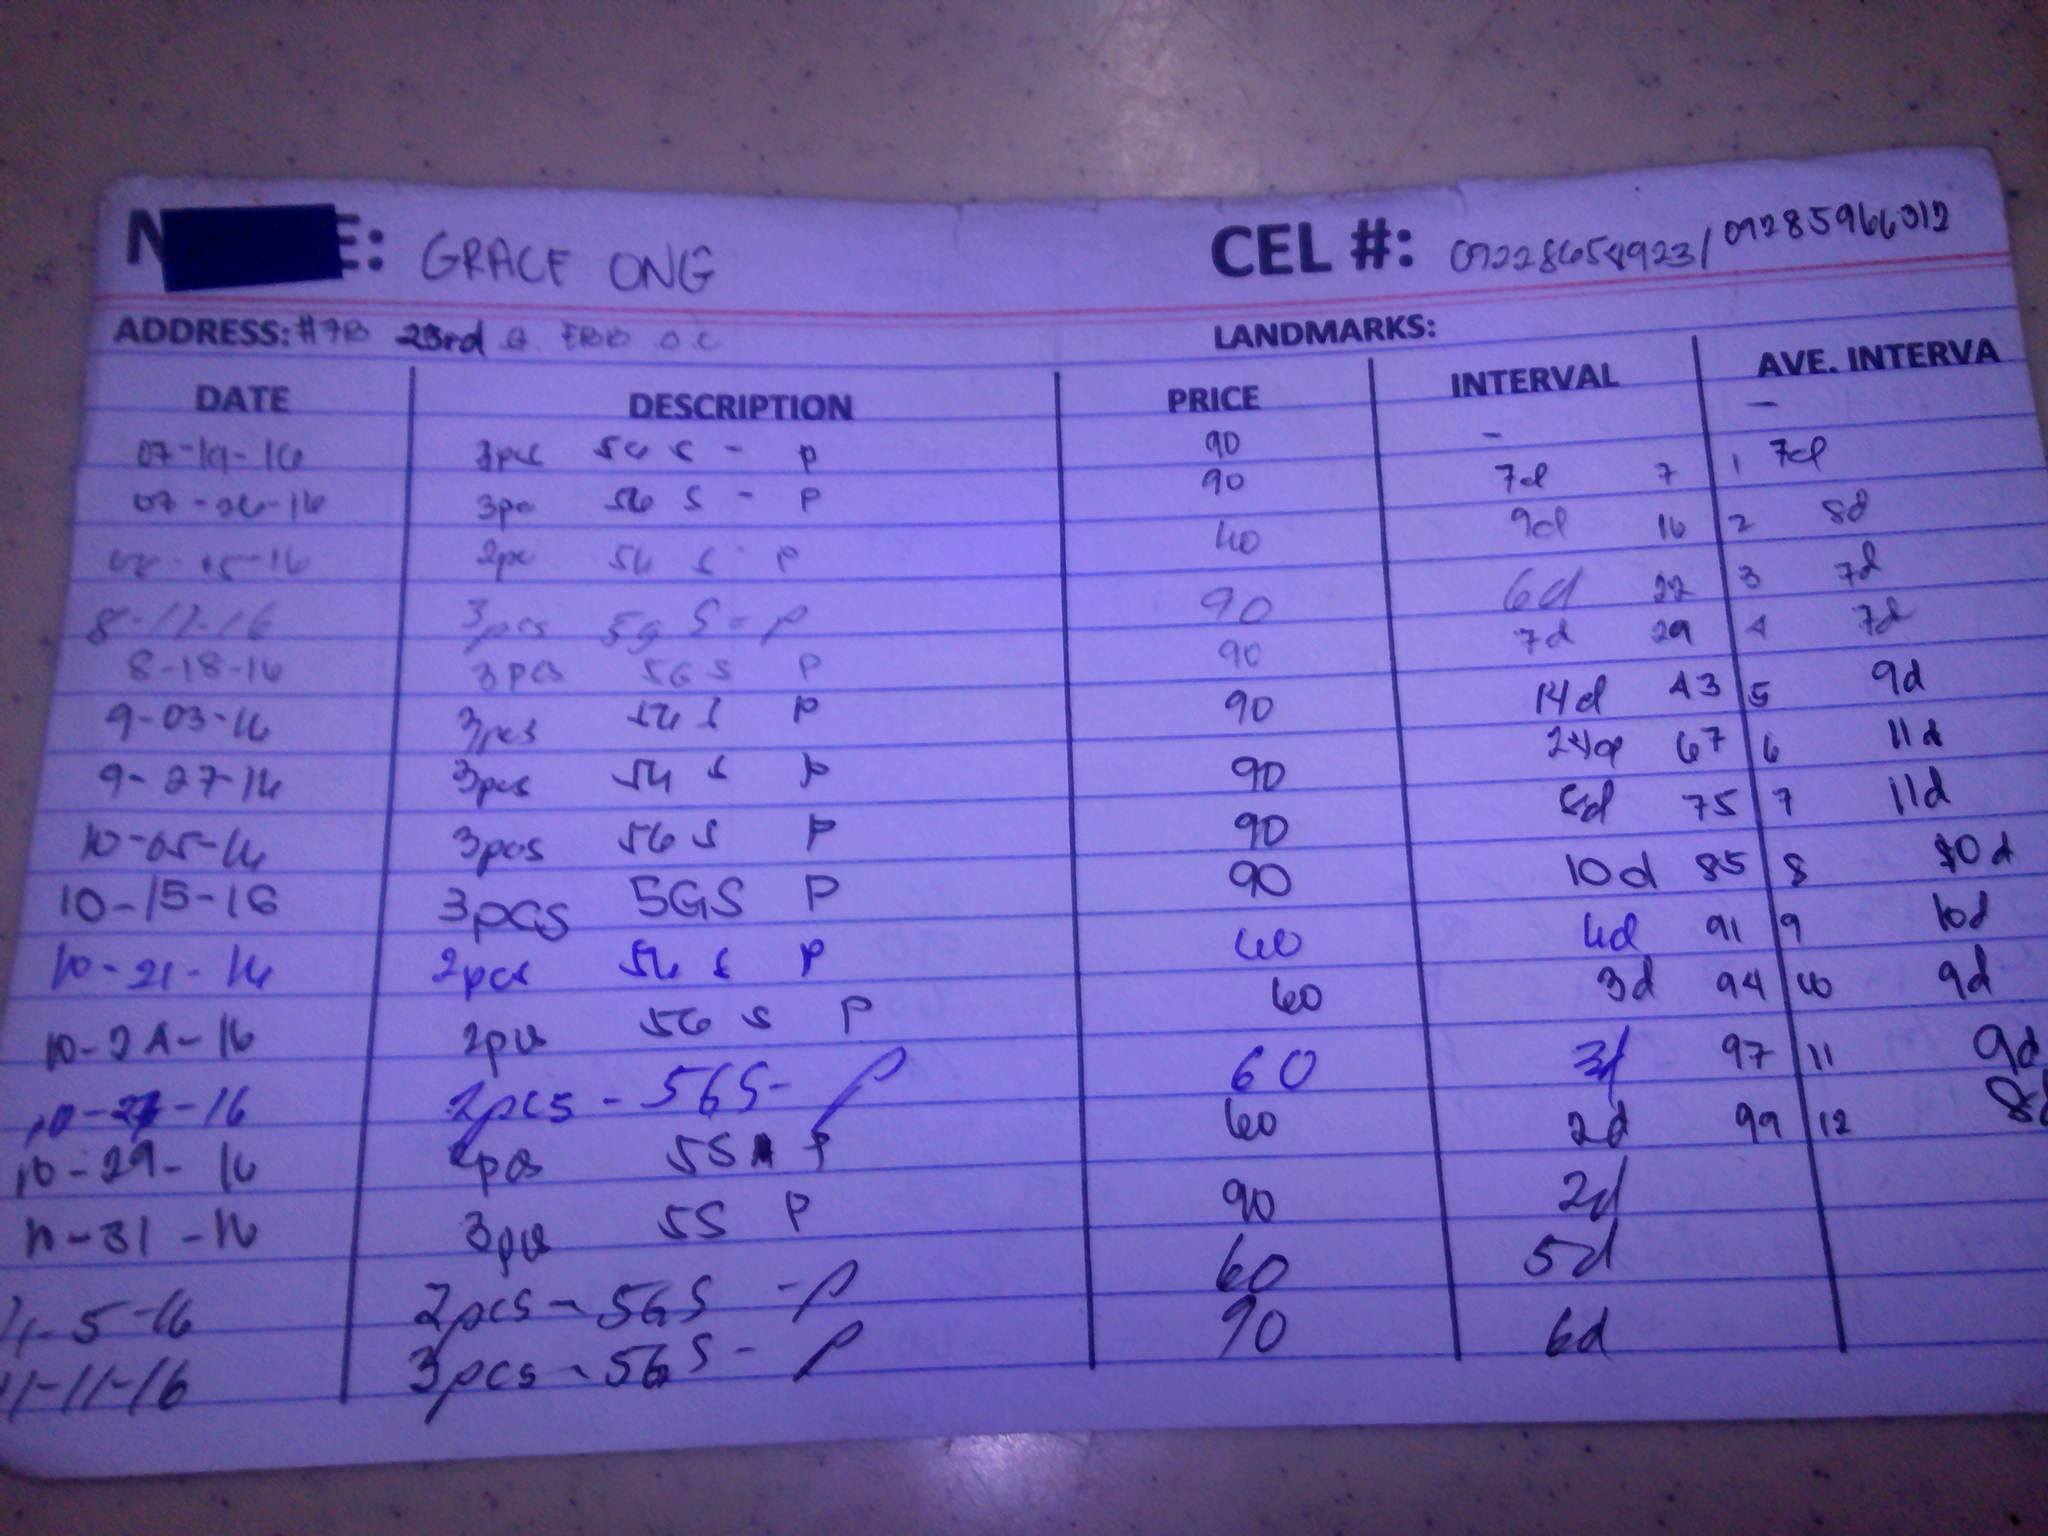 N E: GRACE ONG CEL #: 09228654923/09285966312
ADDRESS: #7B 23rd LANDMARKS:
DATE DESCRIPTION PRICE INTERVAL AVE. INTERVA
07-19-16 3pcs 5G S - P 90 - -
07-26-16 3pc 5G S - P 90 7d 7 1 7d
2pc 5G S - P 60 9d 16 2 8d
8-12-16 3pcs 5g S - P 90 6d 22 3 7d
8-18-16 3pcs 5G S P 90 7d 29 4 7d
9-03-16 3pcs 5G S P 90 14d 43 5 9d
9-27-16 3pcs 5G S P 90 24d 67 6 11d
10-05-16 3pcs 5G S P 90 8d 75 7 11d
10-15-16 3pcs 5GS P 90 10d 85 8 10d
10-21-16 2pcs 5G S P 60 6d 91 9 10d
10-24-16 2pcs 5G S P 60 3d 94 10 9d
10-27-16 2pcs - 5GS - P 60 3d 97 11 9d
10-29-16 2pcs 5S P 60 2d 99 12
31-16 3pcs 5S P 90 2d
11-5-16 2pcs - 5GS - P 60 5d
11-11-16 3pcs - 5GS - P 90 6d